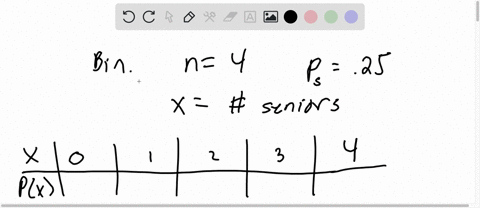 Bin. n = 4 Ps = .25
x = # seniors
X 0 1 2 3 4
P(x)